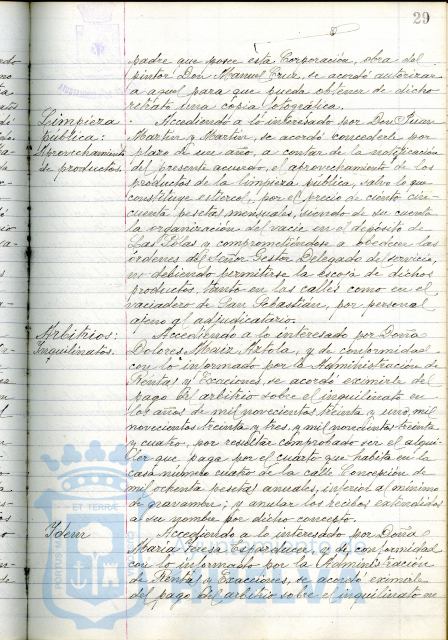 29
padre que posee esta Corporación, obra del
pintor Don Manuel Cruz, se acordó autorizar
a aquel para que pueda obtener de dicho
retrato una copia fotográfica.
Limpieza pública: Aprovechamiento de productos.
Accediendo a lo interesado por Don Juan
Martín y Martín, se acordó concederle por
plazo de un año, a contar de la notificación
del presente acuerdo, el aprovechamiento de los
productos de la limpieza pública, salvo lo que
constituye estiercol, por el precio de ciento cin-
cuenta pesetas mensuales, siendo de su cuenta
la organización del vacie en el depósito de
Las Colas y comprometiéndose a obedecer las
órdenes del Señor Gestor Delegado del servicio,
no debiendo permitirse la escoja de dichos
productos, tanto en las calles como en el
vaciadero de San Sebastián, por personal
ajeno al adjudicatario.
Arbitrios: Inquilinatos.
Accediendo a lo interesado por Doña
Dolores y de conformidad
con lo informado por la Administración de
Rentas y Exacciones, se acordó eximirle del
pago del arbitrio sobre el inquilinato en
los años de mil novecientos treinta y uno, mil
novecientos treinta y tres, y mil novecientos treinta
y cuatro, por resultar comprobado ser el alqui-
ler que paga por el cuarto que habita en la
casa número cuatro de la calle Concepción de
mil ochenta pesetas anuales, inferior al mínimo
de gravamen; y anular los recibos extendidos
a su nombre por dicho concepto.
Idem
Accediendo a lo interesado por Doña
María Teresa y de conformidad
con lo informado por la Administración
de Rentas y Exacciones, se acordó eximirle
del pago del arbitrio sobre el inquilinato en